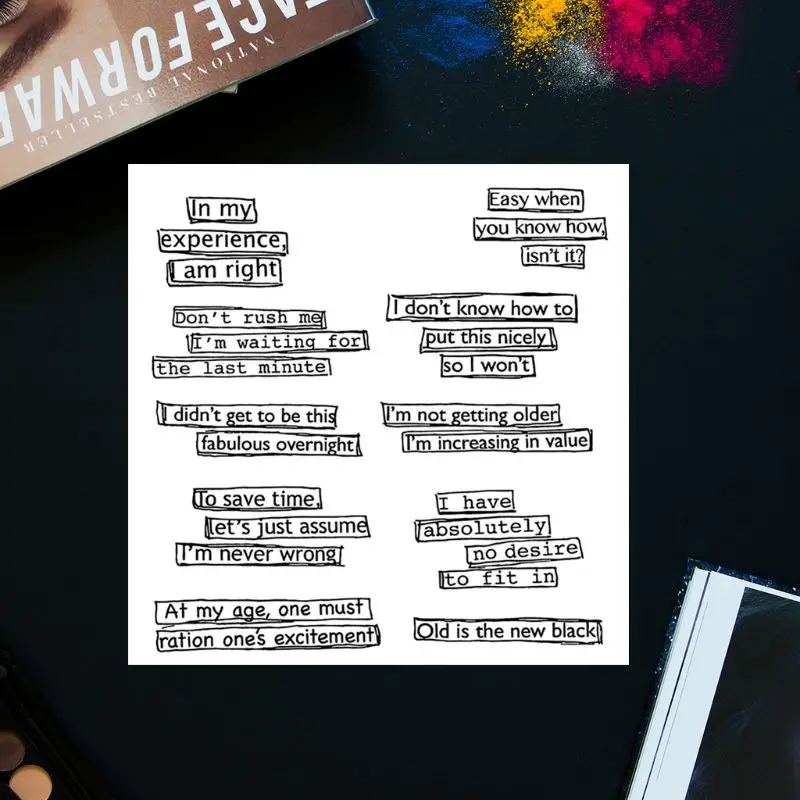 FACE FORWAR
NATIONAL BESTSELLER
In my
experience,
I am right
Easy when
you know how,
isn't it?
Don't rush me
I'm waiting for
the last minute
I don't know how to
put this nicely
so I won't
I didn't get to be this
fabulous overnight
I'm not getting older
I'm increasing in value
To save time,
let's just assume
I'm never wrong
I have
absolutely
no desire
to fit in
At my age, one must
ration one's excitement
Old is the new black